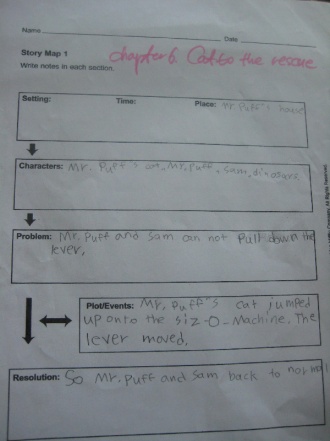 Name Date
Story Map 1
chapter 6. Cat to the rescue
Write notes in each section.
Setting: Time: Place: Mr. Puff's house
Characters: Mr. Puff's cat, Mr. Puff, Sam, dinosaurs
Problem: Mr. Puff and Sam can not Pull down the
lever.
Plot/Events: Mr. Puff's cat jumped
up onto the siz-O-Machine. The
lever moved.
Resolution: So Mr. Puff and Sam back to normal